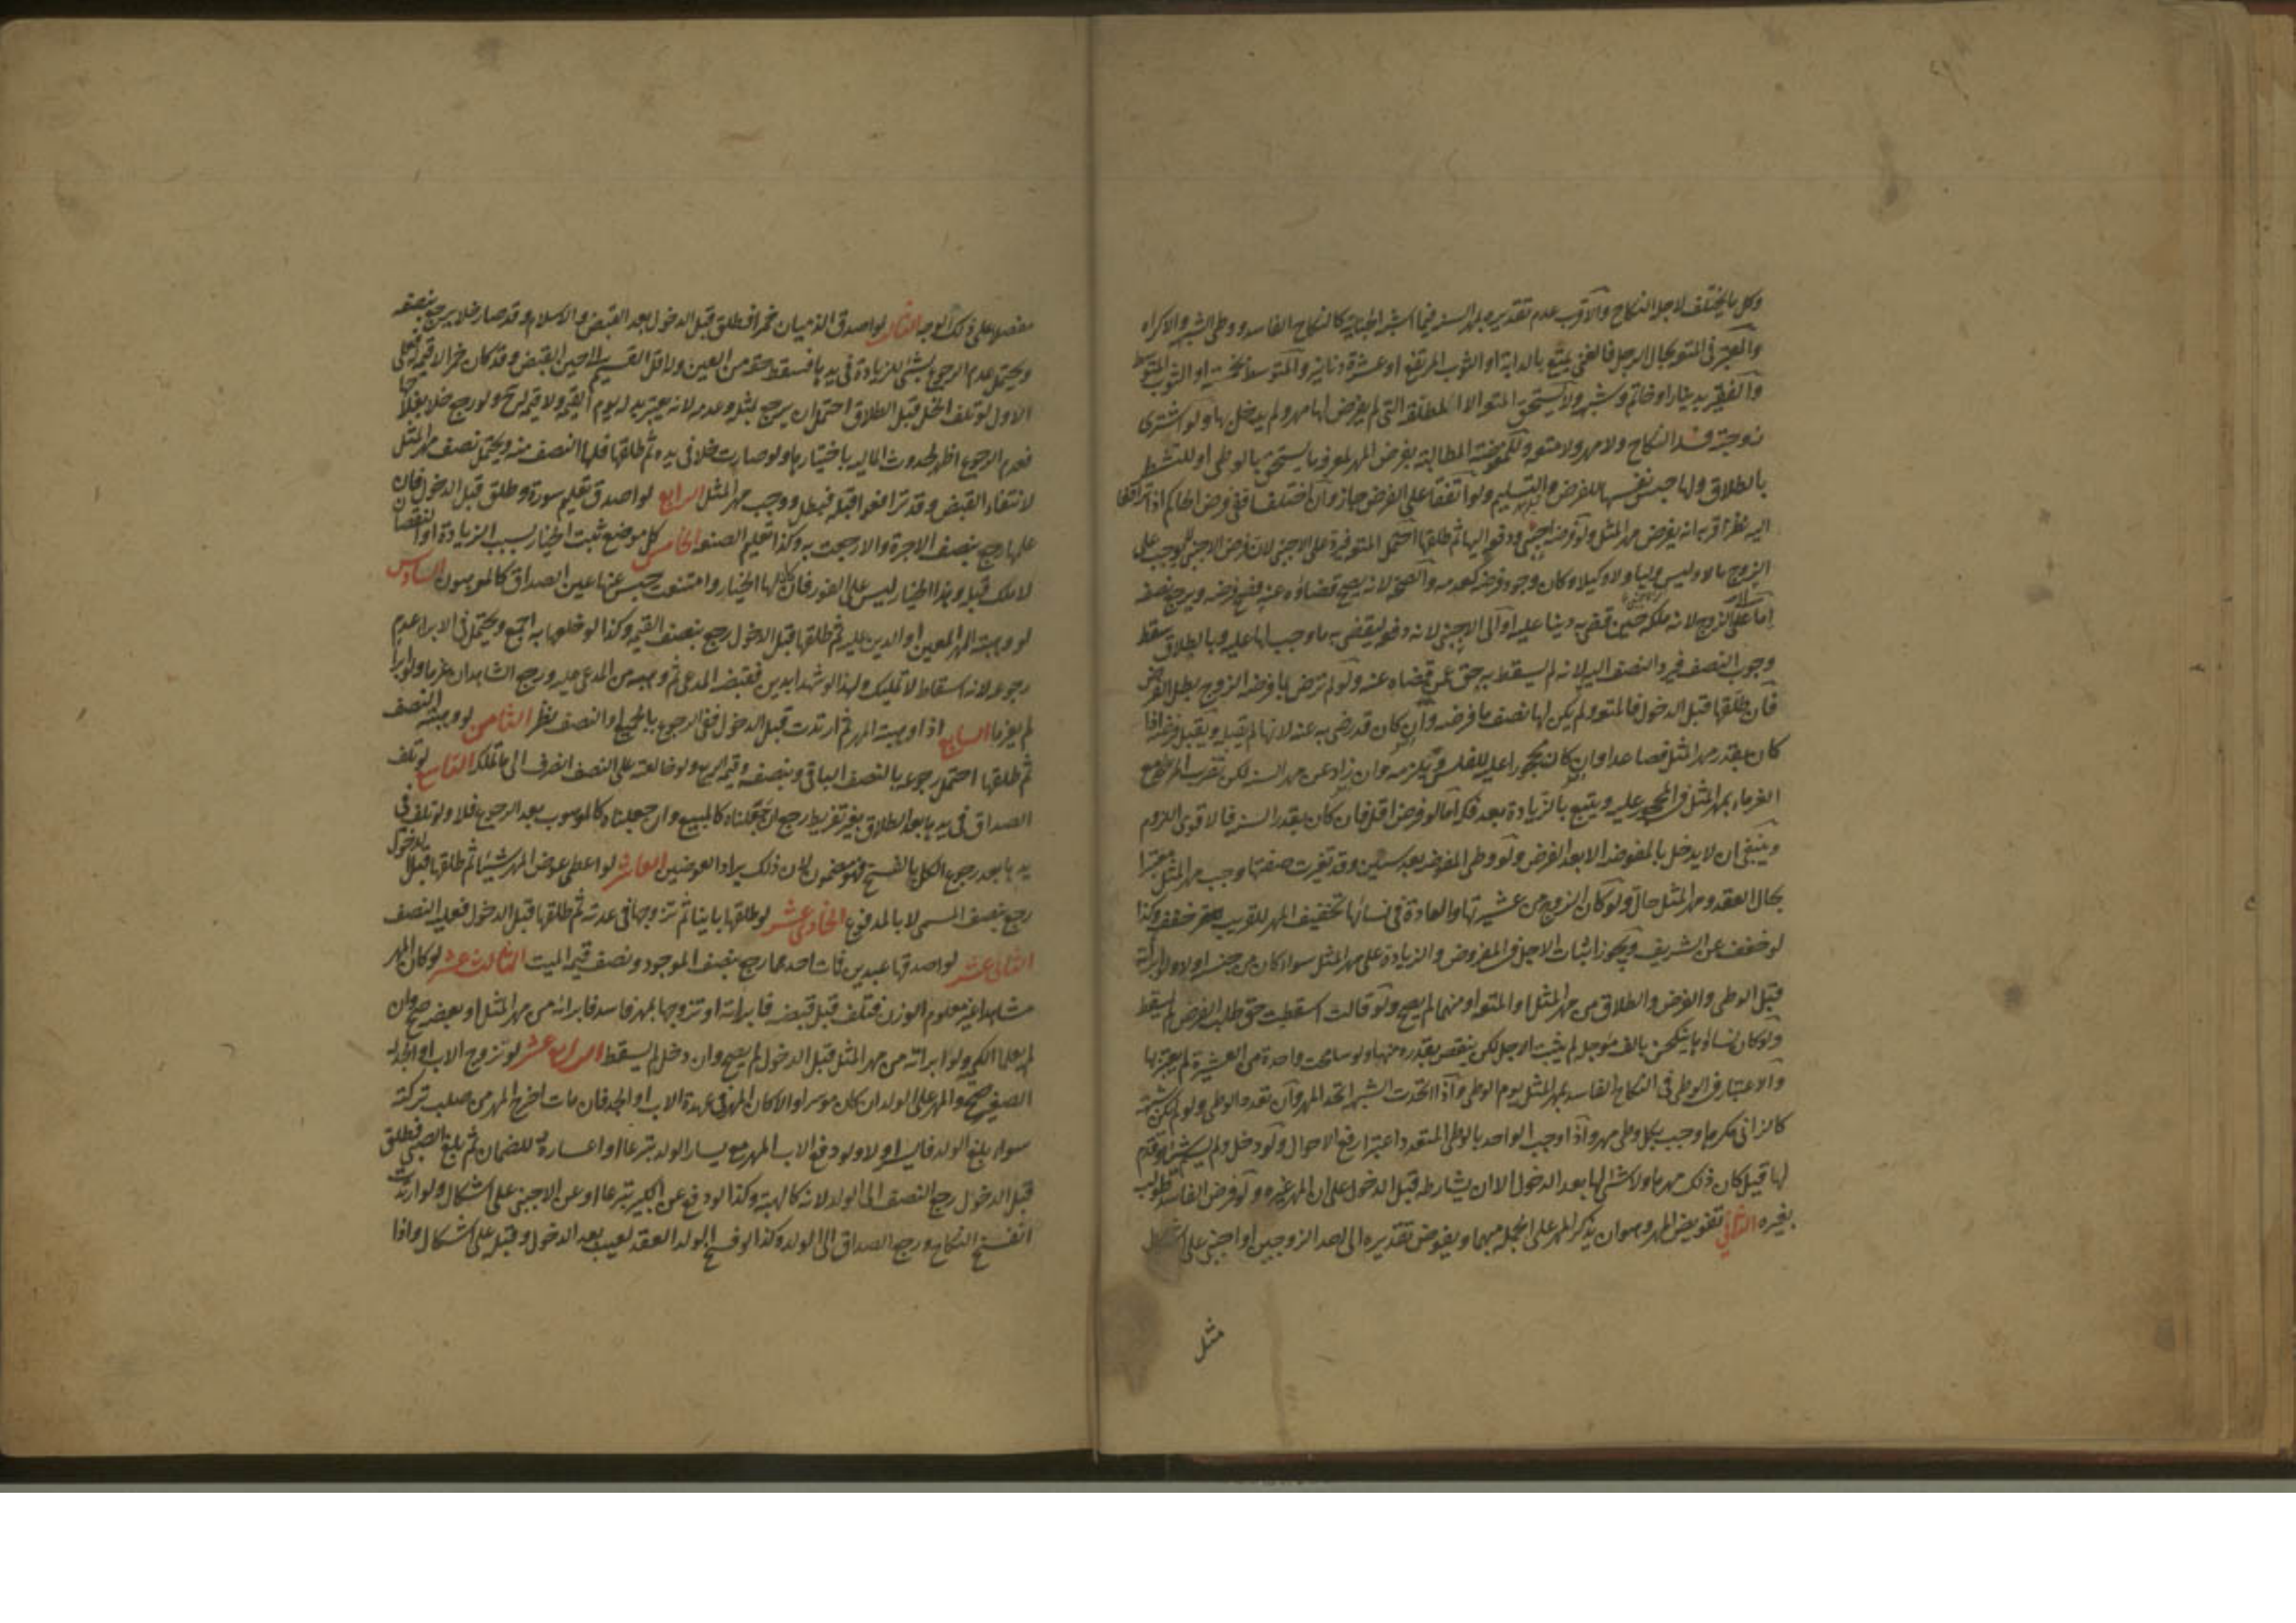 وكل ما يختلف لاجله النكاح والاقرب عدم تقديره بمهر السنة فيما اشبه الجناية كالنكاح الفاسد ووطى الشبهة والاكراه
والمعتبر فى المتعة بحال الرجل فالغنى يمتع بالدابة او الثوب المرتفع او عشرة دنانير والمتوسط بخمسة او الثوب المتوسط
والفقير بدينار او خاتم وشبهه ولا يستحق المتعة الا المطلقة التى لم يفرض لها مهر ولم يدخل بها ولو اشترى
زوجته فسد النكاح ولا مهر ولا متعة وللمفوضة المطالبة بفرض المهر لتعرف ما يستحق بالوطى او للتشطر
بالطلاق ولها حبس نفسها للفرض والتسليم ولو اتفقا على الفرض جاز وان اختلفا ففى فرض الحاكم اذا ترافعا
اليه نظر اقربه انه يفرض مهر المثل ولو فرضه اجنبى ودفعه اليها ثم طلقها احتمل المتعة على الاجنبى لان فرض الاجنبى يوجب على
الزوج مالا وليس وليا ولا وكيلا وكان وجود فرضه كعدمه والصحة لانه يصح قضاؤه عنه فصح فرضه ويرجع نصفه
اما على الزوج لانه ملكه حين قضى به دينا عليه او الى الاجنبى لانه دفعه ليقضى به ما وجب لها عليه وبالطلاق سقط
وجوب النصف فيرد النصف اليه لانه لم يسقط به حق عمن قضاه عنه ولو لم ترض بما فرضه الزوج بطل الفرض
فان طلقها قبل الدخول فالمتعة ولم يكن لها نصف ما فرضه وان كان قد رضى به عنه لانها لم يقبله ويقبل فرضه اذا
كان بقدر مهر المثل فصاعدا وان كان محجورا عليه للفلس ويلزمه وان زاد عن مهر السنة لكن تضرب المرأة مع
الغرماء بمهر المثل فى المحجور عليه ويتبع بالزيادة بعد فكه اما لو فرض اقل فان كان بقدر السنة فالاقوى اللزوم
وينبغى ان لا يدخل بالمفوضة الا بعد الفرض ولو وطى المفوضة بعد سنين وقد تغيرت صفتها وجب مهر المثل معتبرا
بحال العقد ومهر المثل حال ولو كان الزوج من عشيرتها والعادة فى نسائها تخفيف المهر للقريب خفف وكذا
لو خفف عن الشريف ويجوز اثبات الاجل فى المفروض والزيادة على مهر المثل سواء كان من جنسه او لا ولو ابرأته
قبل الوطى والفرض والطلاق من مهر المثل او المتعة او منهما لم يصح ولو قالت اسقطت حق طلب الفرض لم يسقط
ولو كان نساؤها ينكحن بالف مؤجل لم يثبت الاجل لكن ينقص بقدره منها ولو سامحت واحدة من العشيرة لم يعتبر بها
والاعتبار فى الوطى فى النكاح الفاسد بمهر المثل يوم الوطى واذا اتحدت الشبهة اتحد المهر وان تعدد الوطى ولو لم يكن شبهة
كالزانى مكرها وجب بكل وطى مهر واذا وجب الواحد بالوطى المتعدد اعتبر ارفع الاحوال ولو دخل ولم يسم شيئا وقدم
لها قيل كان ذلك مهرها ولا شئ لها بعد الدخول الا ان يشارطه قبل الدخول على ان المهر غيره ولو فرض الفاسد طولب
بغيره الثانى تفويض المهر وهو ان يذكر المهر على الجملة مبهما ويفوض تقديره الى احد الزوجين او اجنبى على اشكال
مثل
مفصلا على ذلك الوجه الثالث لو اصدق الذميان خمرا فطلق قبل الدخول بعد القبض والاسلام وقد صار خلا يرجع بنصفه
ويحتمل عدم الرجوع بشئ للزيادة فى يدها فسقط حقه من العين واقل القيم الى حين القبض وقد كان خمرا لا قيمة له فعلى
الاول لو تلف الخل قبل الطلاق احتمل ان يرجع بمثله وعدمه لانه يعتبر بدله يوم القبض ولا قيمة له ح ولو رجع خلا بعلاجها
فعدم الرجوع اظهر لحدوث المالية باختيارها ولو صارت خلا فى يده ثم طلقها فلها النصف منه ويحتمل نصف مهر المثل
لانتفاء القبض وقد ترافعوا قبله فبطل ووجب مهر المثل الرابع لو اصدق تعليم سورة وطلق قبل الدخول فان
علمها رجع بنصف الاجرة والا رجعت به وكذا تعليم الصنعة الخامس كل موضع ثبت الخيار بسبب الزيادة او النقصان
لا ملك قبله وهذا الخيار ليس على الفور فان كان لها الخيار وامتنعت حبس عنها عين الصداق كالمرهون السادس
لو وهبته المهر المعين او الدين عليه ثم طلقها قبل الدخول رجع بنصف القيمة وكذا لو خلعها به اجمع ويحتمل فى الابراء عدم
رجوعه لانه اسقاط لا تمليك ولهذا لو شهدا بدين فقبضه المدعى ثم وهبه من المدعى عليه ورجع الشاهدان غرما ولو ابرأ
لم يغرما السابع اذا وهبته المهر ثم ارتدت قبل الدخول ففى الرجوع بالجميع او النصف نظر الثامن لو وهبته النصف
ثم طلقها احتمل رجوعه بالنصف الباقى وبنصفه وقيمة الربع ولو خالعته على النصف انصرف الى ما تملكه التاسع لو تلف
الصداق فى يدها بعد الطلاق بغير تفريط رجع ان جعلناه كالمبيع وان جعلناه كالموهوب بعد الرجوع فلا ولو تلف فى
يدها بعد رجوع الكل بالفسخ فهو مضمون لان ذلك يراد العوضين العاشر لو اعطى عوض المهر شيئا ثم طلقها قبل الدخول
رجع بنصف المسمى لا بالمدفوع الحادى عشر لو طلقها باينا ثم تزوجها فى عدته ثم طلقها قبل الدخول فعليه النصف
الثانى عشر لو اصدقها عبدين فمات احدهما رجع بنصف الموجود ونصف قيمة الميت الثالث عشر لو كان المهر
مشاهدا غير معلوم الوزن فتلف قبل قبضه فابرأته او تزوجها بمهر فاسد فابرأته من مهر المثل او بعضه صح وان
لم يعلما الكمية ولو ابرأته من مهر المثل قبل الدخول لم يصح وان دخل لم يسقط الرابع عشر لو تزوج الاب او الجد له
الصغير صح والمهر على الولد ان كان موسرا والا كان المهر فى عهدة الاب او الجد فان مات اخرج المهر من صلب تركته
سواء بلغ الولد فايسر او لا ولو دفع الاب المهر مع يسار الولد تبرعا او اعساره للضمان ثم بلغ الصبى فطلق
قبل الدخول رجع النصف الى الولد لانه كالهبة وكذا لو دفع عن الكبير تبرعا او عن الاجنبى على اشكال ولو ارتدت
انفسخ النكاح ورجع الصداق الى الولد وكذا لو فسخ الولد العقد لعيب بعد الدخول وقبله على اشكال واذا